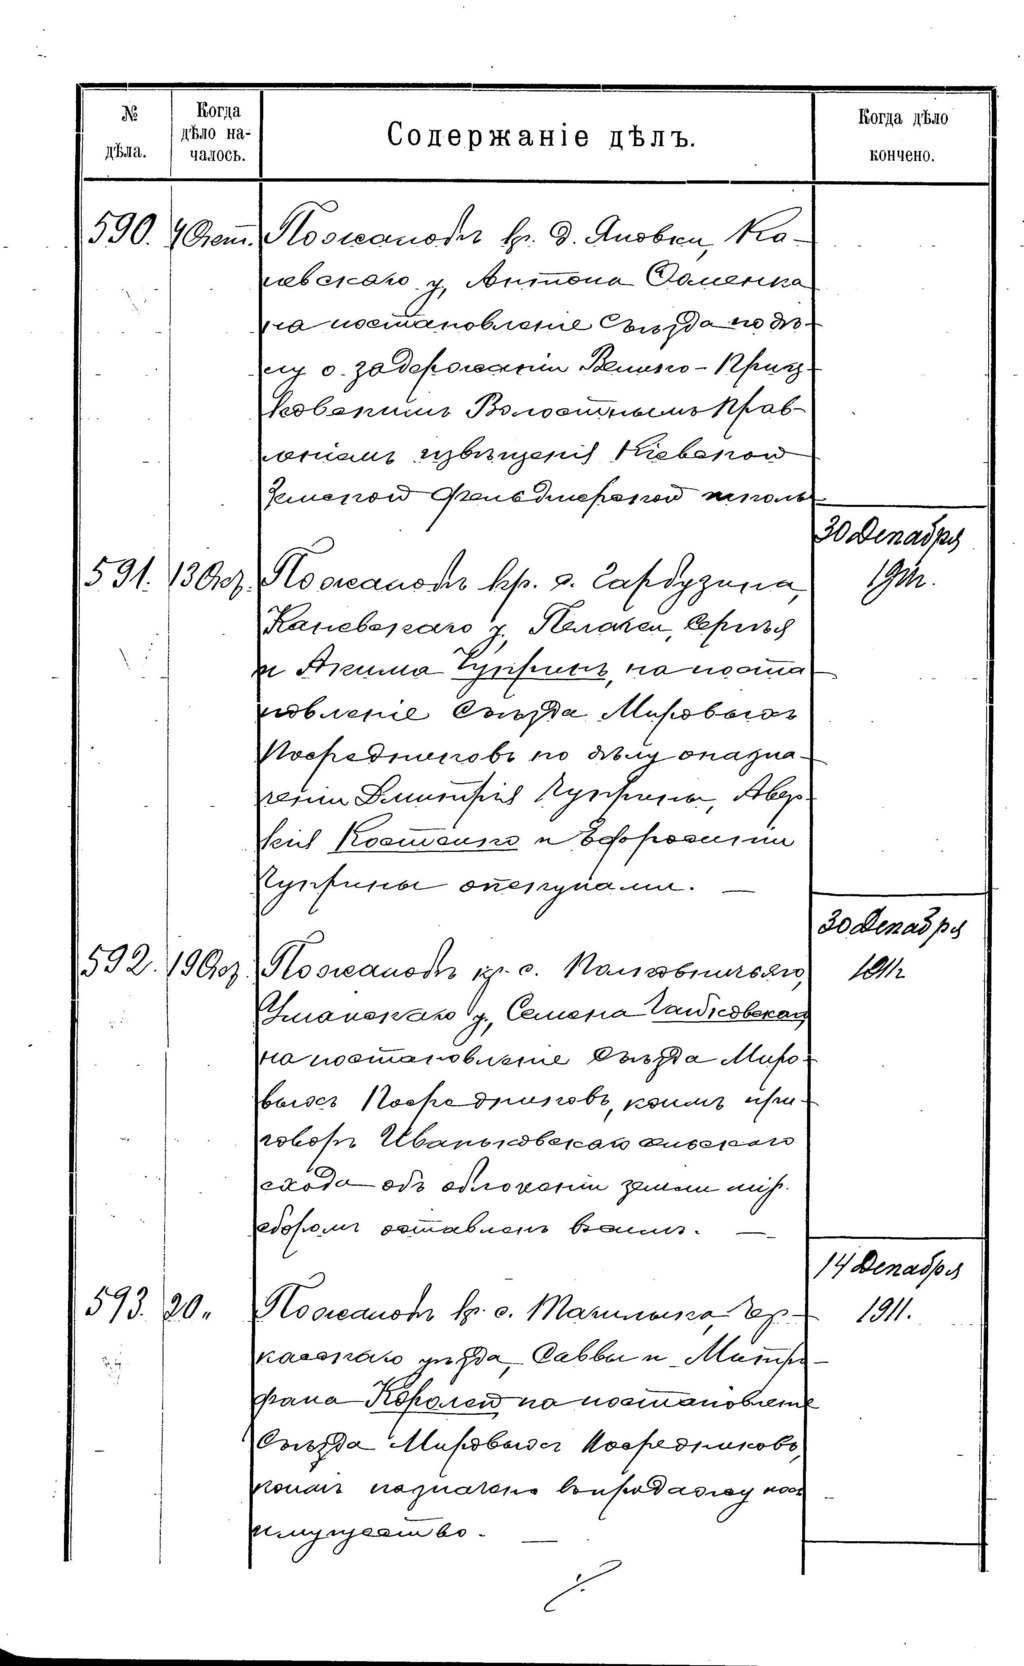 № дѣла.
Когда дѣло началось.
Содержаніе дѣлъ.
Когда дѣло кончено.
590. 4 Окт. По жалобѣ кр. д. Яновки, Ка-
невскаго у, Антона
на постановленіе Съѣзда по дѣ-
лу о задержаніи Велико-Приц-
ковскимъ Волостнымъ Прав-
леніемъ извѣщенія Кіевской
Земской Фельдшерской школы
30 Декабря
591. 13 Окт. По жалобѣ кр. с. Гарбузина, 1911г.
Каневскаго у, Пелагеи, Сергѣя
и Акима Чупринъ, на поста
новленіе Съѣзда Мировыхъ
Посредниковъ по дѣлу о назна-
ченіи Дмитрія Чуприны, Авер-
кія Костенко и Ефросиніи
Чуприны опекунами. —
30 Декабря
592. 19 Окт. По жалобѣ кр. с. Полковничьяго, 1911г
Уманскаго у., Семена
на постановленіе Съѣзда Миро-
выхъ Посредниковъ, коимъ при-
говоръ Иваньковскаго сельскаго
схода объ обложеніи земли мір.
сборомъ оставленъ въ силѣ. —
14 Декабря
593. 20 „ По жалобѣ кр. с. Матилыка, Чер- 1911.
касскаго уѣзда, Саввы и Митро
фана Королей на постановленіе
Съѣзда Мировыхъ Посредниковъ,
коимъ назначено въ продажу
имущество. —